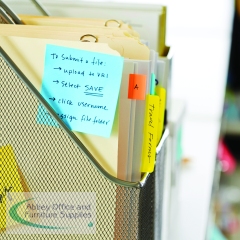 To Submit a file:
→ upload to URI
→ Select SAVE
→ click username
assign file folder
A
Travel Forms
Abbey Office and
Furniture Supplies